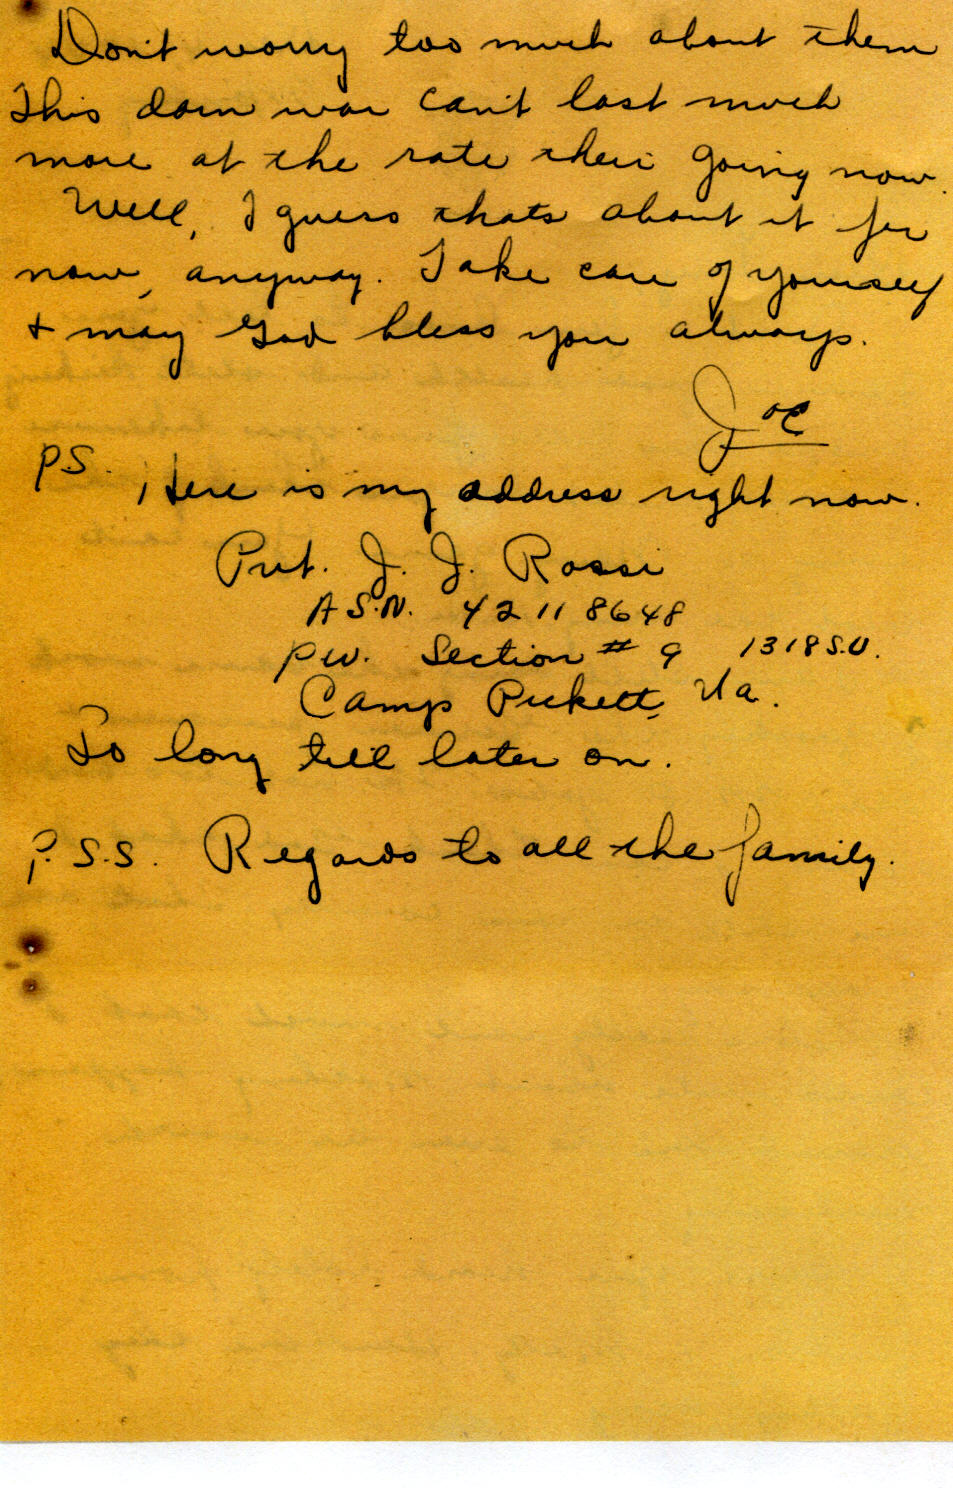 Don't worry too much about them
This darn war can't last much
more at the rate their going now.
Well, I guess thats about it for
now, anyway. Take care of yourself
& may God bless you always.
Joe
P.S. Here is my address right now.
Pvt. J. J. Rossi
A.S.N. 42118648
P.W. Section # 9 1318 S.U.
Camp Pickett, Va.
So long till later on.
P.S.S. Regards to all the family.